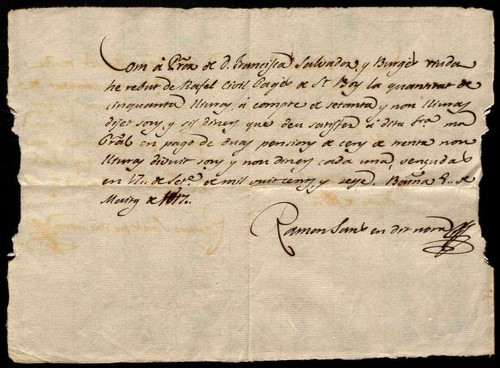 Com á Pror de D. Francisca Salvador y Burgès viuda
he rebut de Rafel Civil Pagès de St Boy la quantitat de
cinquanta lliuras, á compte de setanta y nou lliuras
diset sous, y sis diners que deu satisfer á dita ma
Pral en pago de duas pensions de cens de trenta nou
lliuras divuit sous y nou diners cada una, vensudas
en 17 de Setre de mil vuit cents, y setse. Barna 8 de
Mars de 1817.
Ramon Sans en dit nom